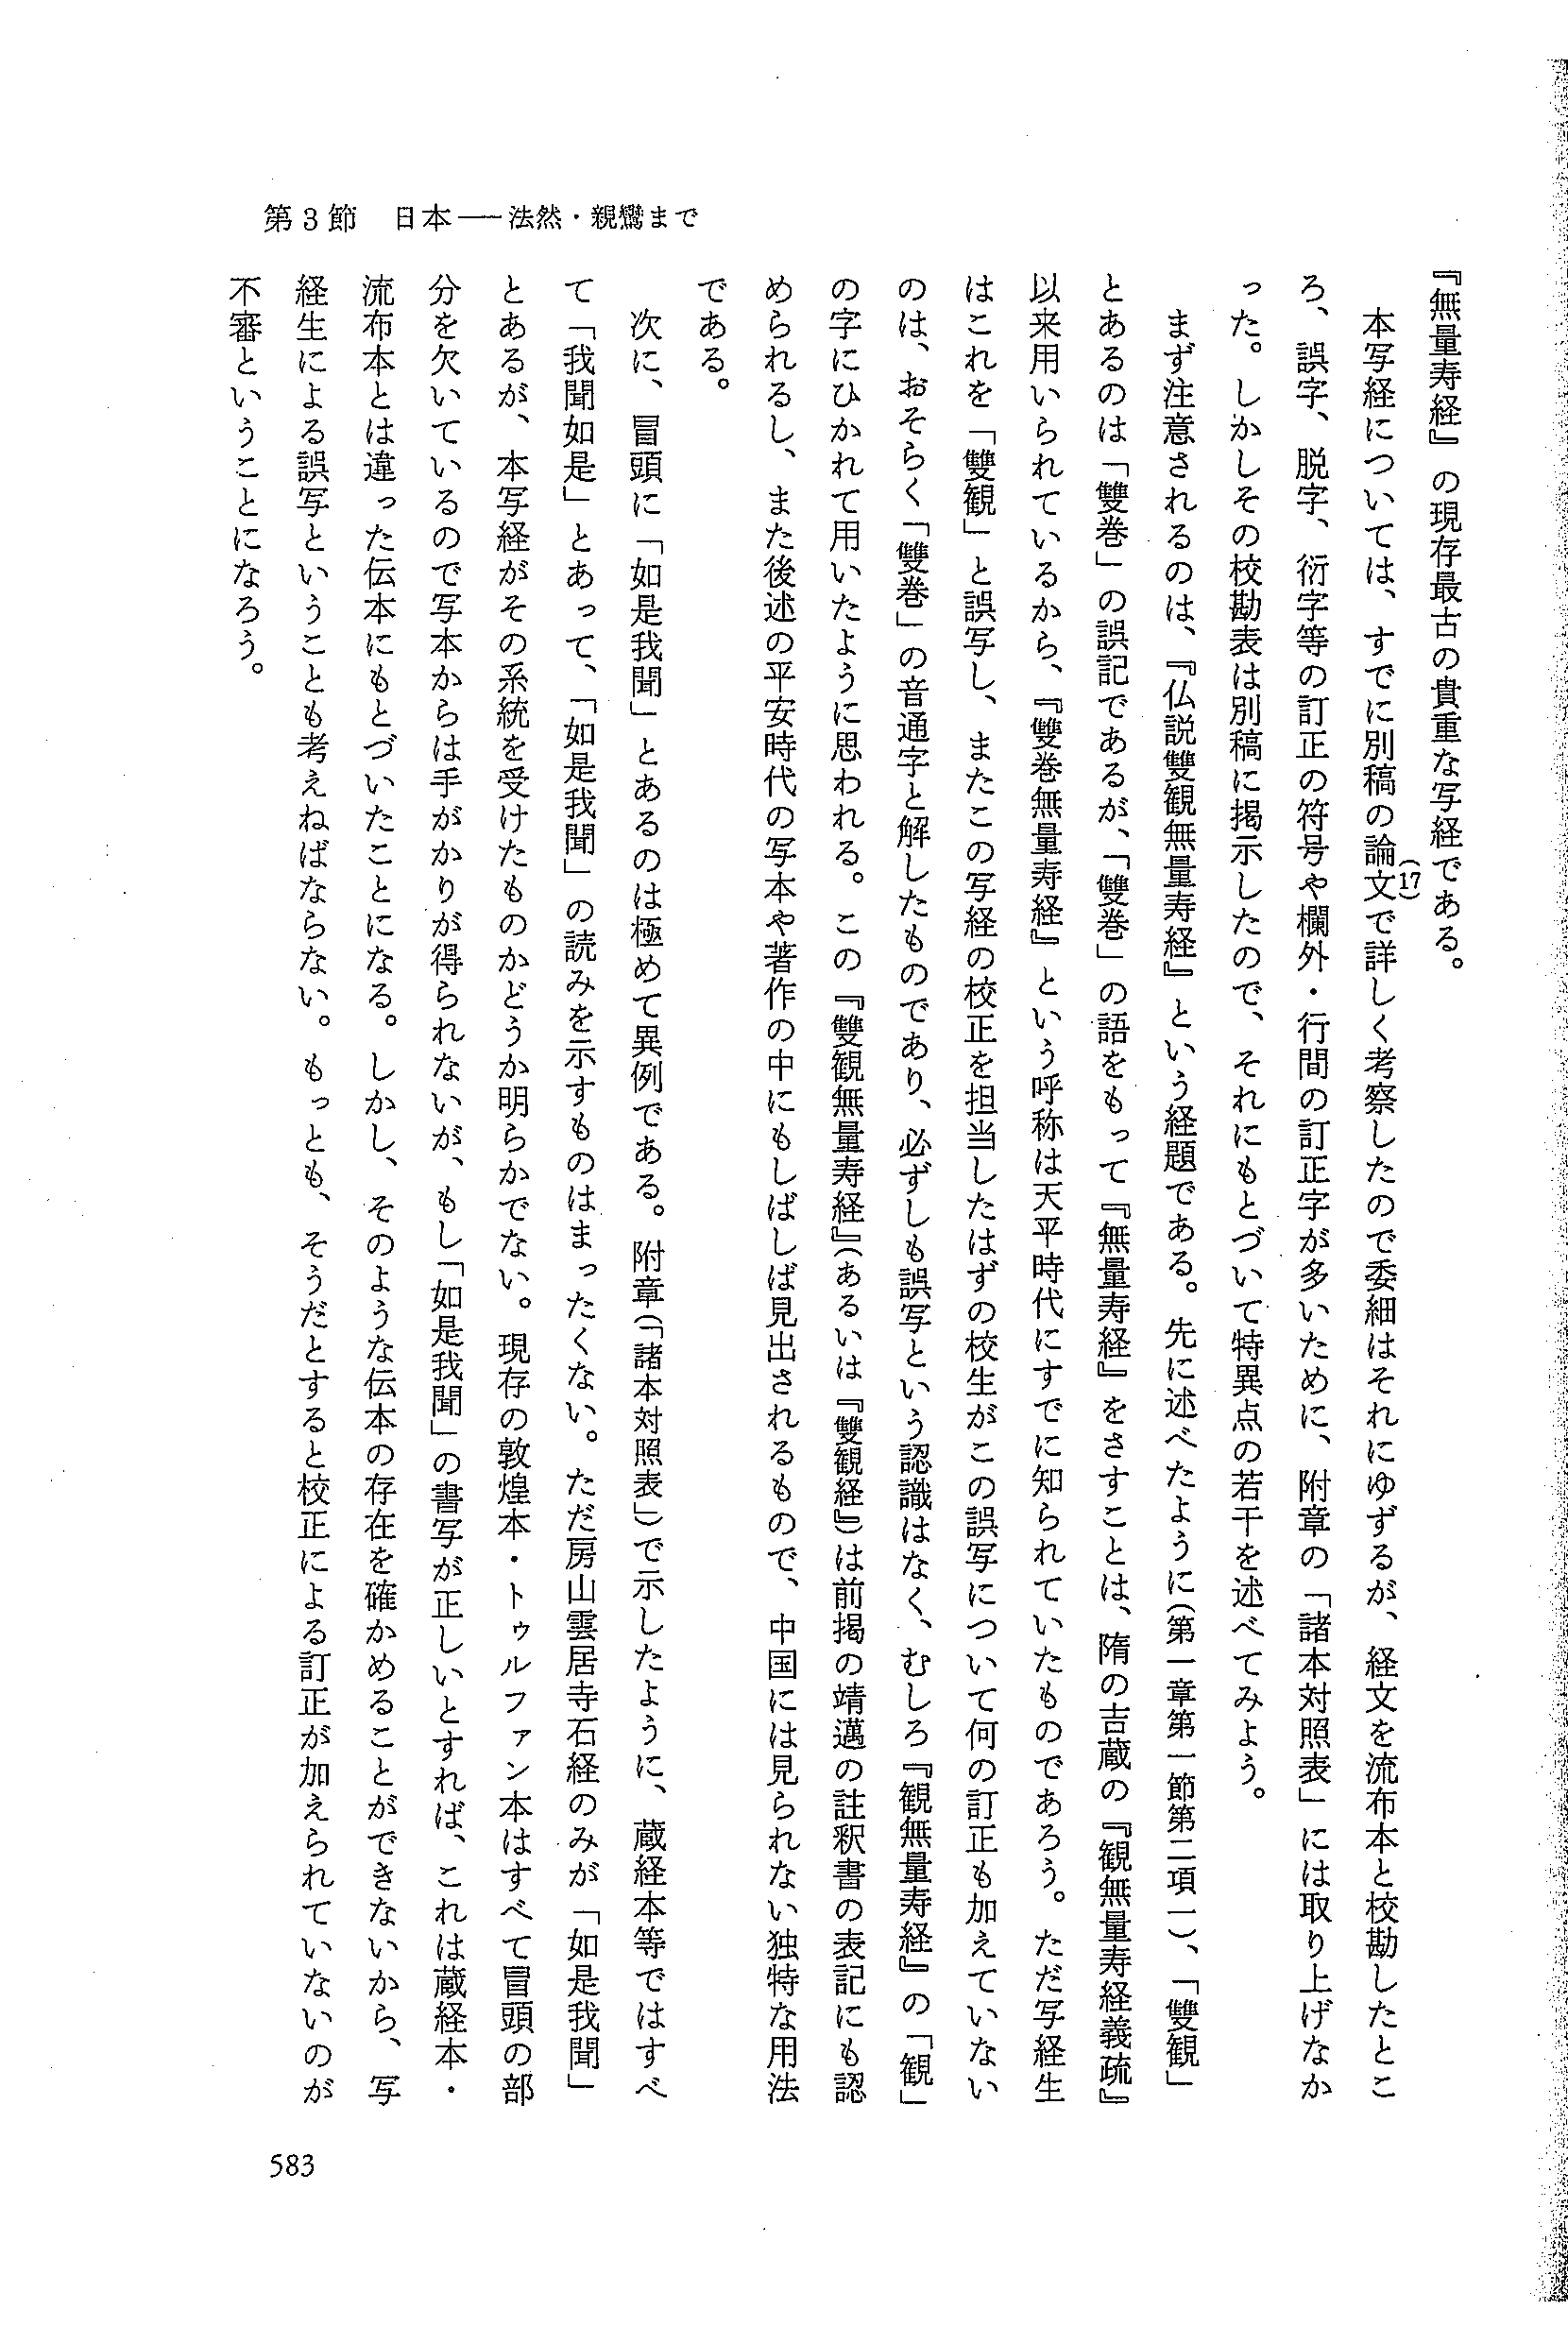 第3節　日本――法然・親鸞まで
『無量寿経』の現存最古の貴重な写経である。
　本写経については、すでに別稿の論文(17)で詳しく考察したので委細はそれにゆずるが、経文を流布本と校勘したとこ
ろ、誤字、脱字、衍字等の訂正の符号や欄外・行間の訂正字が多いために、附章の「諸本対照表」には取り上げなか
った。しかしその校勘表は別稿に掲示したので、それにもとづいて特異点の若干を述べてみよう。
　まず注意されるのは、『仏説雙観無量寿経』という経題である。先に述べたように(第一章第一節第二項一)、「雙観」
とあるのは「雙巻」の誤記であるが、「雙巻」の語をもって『無量寿経』をさすことは、隋の吉蔵の『観無量寿経義疏』
以来用いられているから、『雙巻無量寿経』という呼称は天平時代にすでに知られていたものであろう。ただ写経生
はこれを「雙観」と誤写し、またこの写経の校正を担当したはずの校生がこの誤写について何の訂正も加えていない
のは、おそらく「雙巻」の音通字と解したものであり、必ずしも誤写という認識はなく、むしろ『観無量寿経』の「観」
の字にひかれて用いたように思われる。この『雙観無量寿経』(あるいは『雙観経』)は前掲の靖邁の註釈書の表記にも認
められるし、また後述の平安時代の写本や著作の中にもしばしば見出されるもので、中国には見られない独特な用法
である。
　次に、冒頭に「如是我聞」とあるのは極めて異例である。附章(「諸本対照表」)で示したように、蔵経本等ではすべ
て「我聞如是」とあって、「如是我聞」の読みを示すものはまったくない。ただ房山雲居寺石経のみが「如是我聞」
とあるが、本写経がその系統を受けたものかどうか明らかでない。現存の敦煌本・トゥルファン本はすべて冒頭の部
分を欠いているので写本からは手がかりが得られないが、もし「如是我聞」の書写が正しいとすれば、これは蔵経本・
流布本とは違った伝本にもとづいたことになる。しかし、そのような伝本の存在を確かめることができないから、写
経生による誤写ということも考えねばならない。もっとも、そうだとすると校正による訂正が加えられていないのが
不審ということになろう。
583